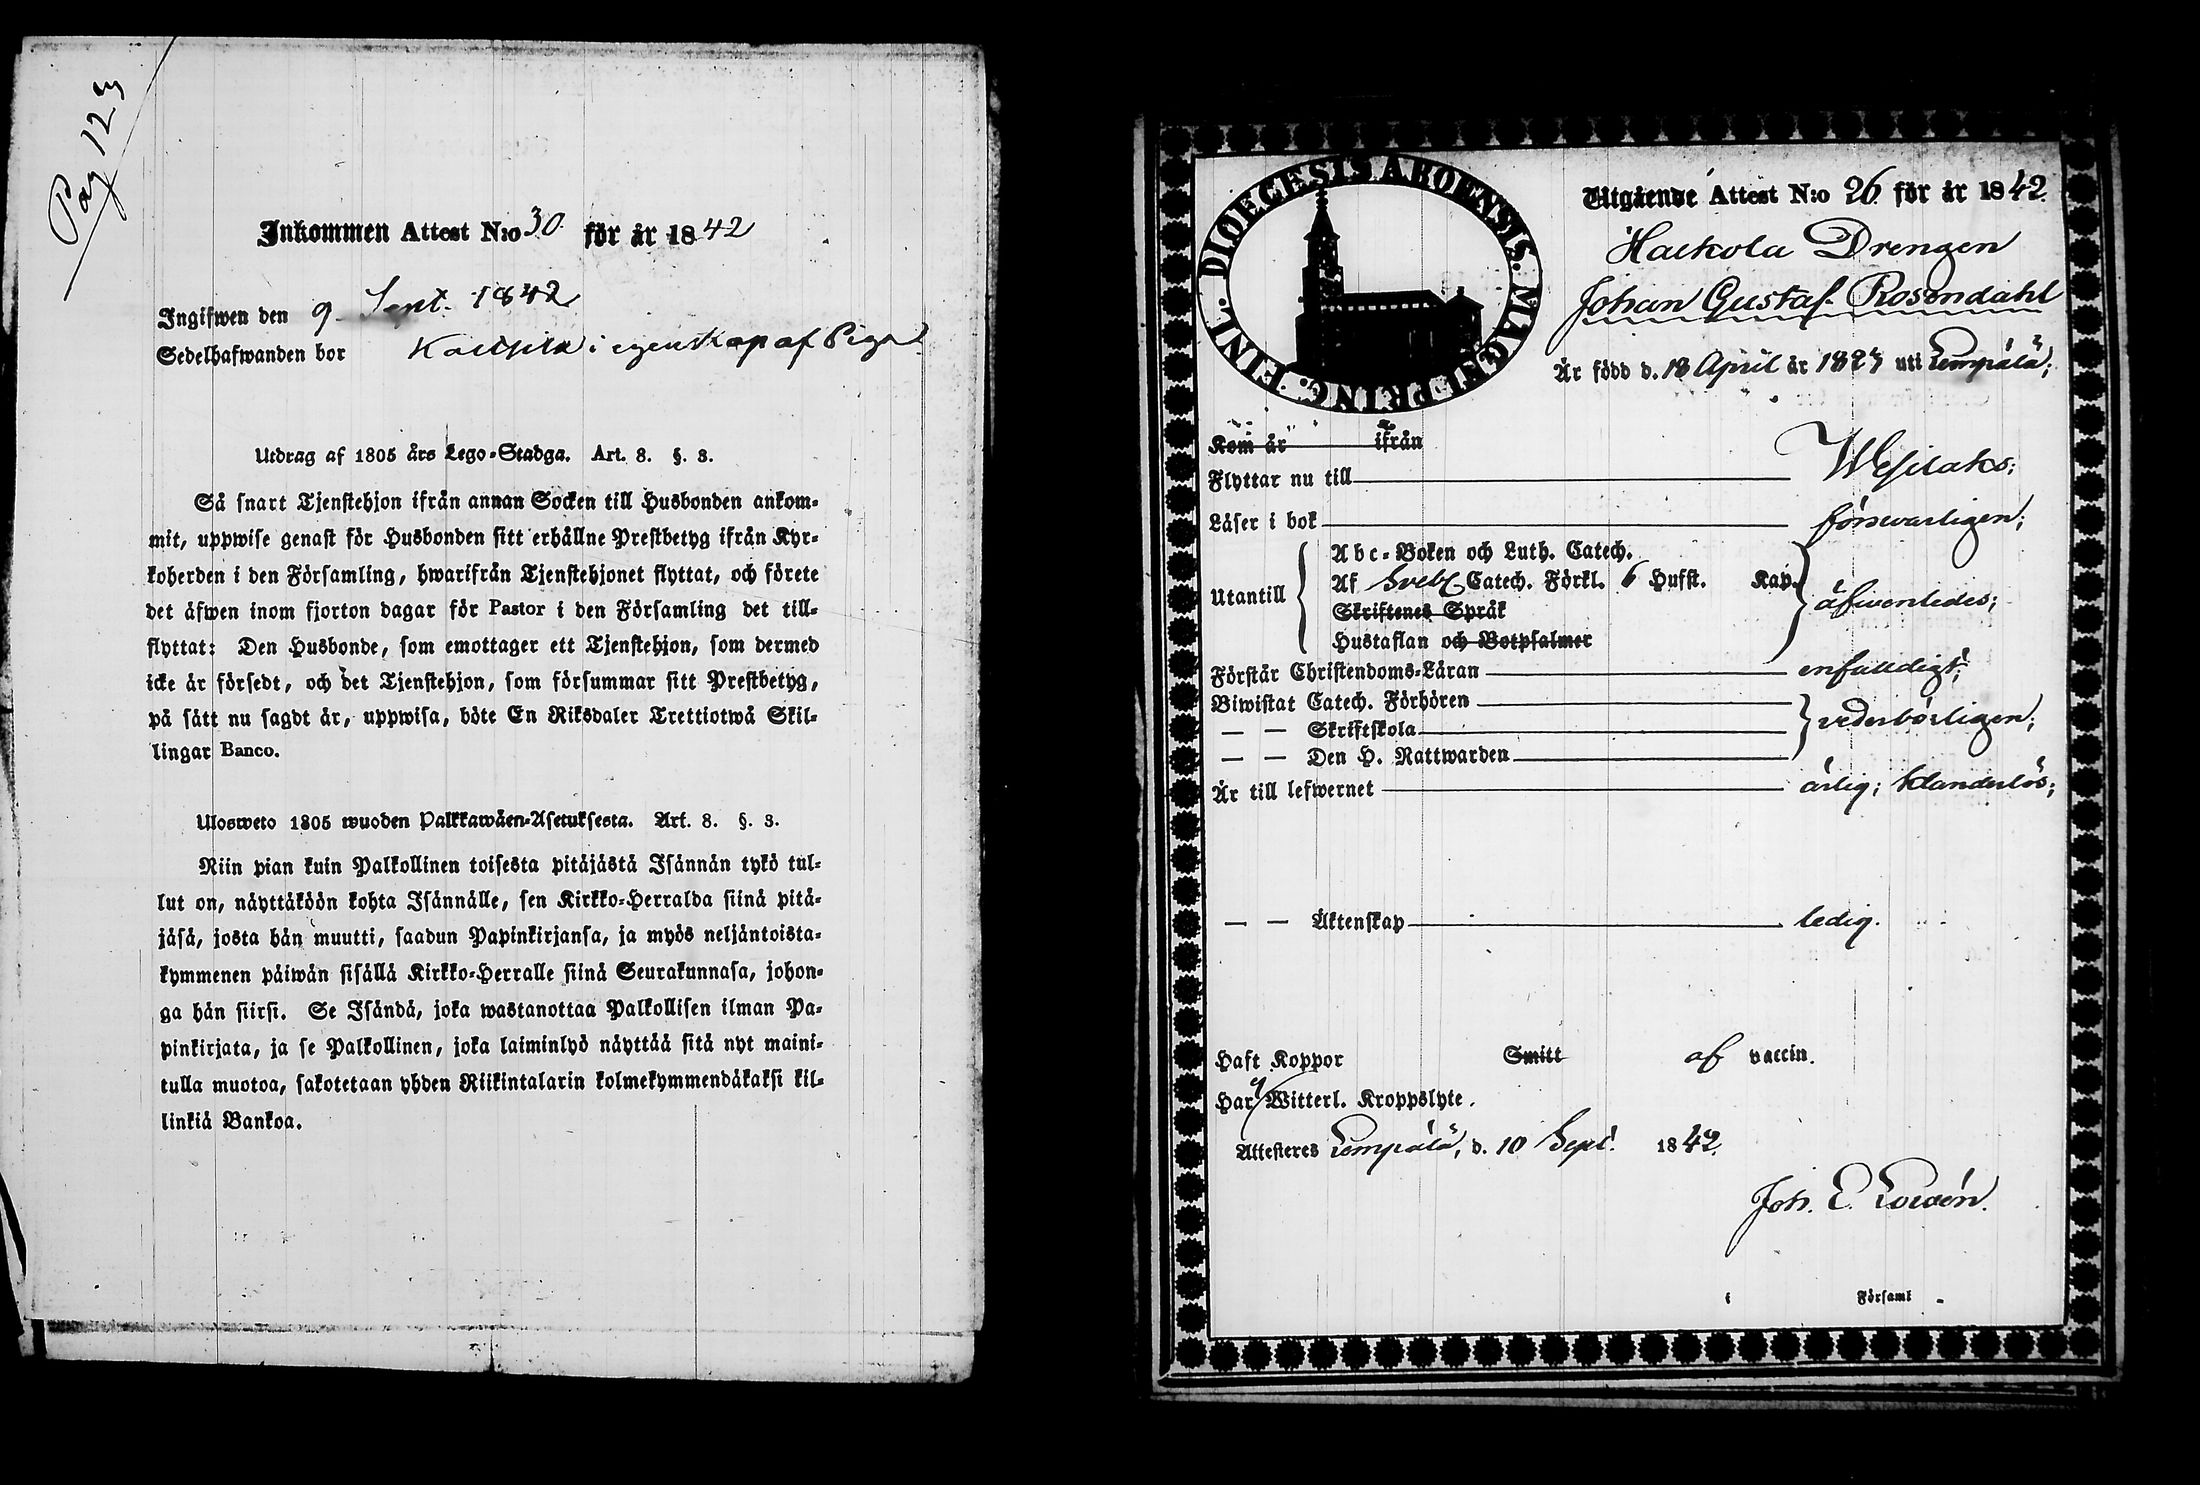 Pag 123
Inkommen Attest N:o 30. för år 1842
Ingifwen den 9 Sept. 1842
Sedelhafwanden bor i egenskap af Piga
Utdrag af 1805 års Lego-Stadga. Art. 8. §. 3.
Så snart Tjenstehjon ifrån annan Socken till Husbonden ankom-
mit, uppwise genast för Husbonden sitt erhållne Prestbetyg ifrån Kyr-
koherden i den Församling, hwarifrån Tjenstehjonet flyttat, och förete
det äfwen inom fjorton dagar för Pastor i den Församling det till-
flyttat: Den Husbonde, som emottager ett Tjenstehjon, som dermed
icke är försedt, och det Tjenstehjon, som försummar sitt Prestbetyg,
på sätt nu sagdt är, uppwisa, böte En Riksdaler Trettiotwå Skil-
lingar Banco.
Ulosweto 1805 wuoden Palkkawäen-Asetuksesta. Art. 8. §. 3.
Niin pian kuin Palkollinen toisesta pitäjästä Isännän tykö tul-
lut on, näyttäköön kohta Isännälle, sen Kirkko-Herralda siinä pitä-
jäsä, josta hän muutti, saadun Papinkirjansa, ja myös neljäntoista-
kymmenen päiwän sisällä Kirkko-Herralle siinä Seurakunnasa, johon-
ga hän siirsi. Se Isändä, joka wastanottaa Palkollisen ilman Pa-
pinkirjata, ja se Palkollinen, joka laiminlyö näyttää sitä nyt maini-
tulla muotoa, sakotetaan yhden Riikintalarin kolmekymmendäkaksi kil-
linkiä Bankoa.
DIOECESIS ABOENSIS. MAG. PRINC. FINL.
Utgående Attest N:o 26 för år 1842.
Haikola Drengen
Johan Gustaf Rosendahl
Är född d. 18 April år 1823 uti Lempälä;
Kom år ifrån
Flyttar nu till Wesilaks;
Läser i bok förswarligen;
Utantill
Abc-Boken och Luth. Catech.
Af Sveb. Catech. Förkl. 6 Hufst. Kap.
Skriftenes Språk
Hustaflan och Botpsalmer
äfwenledes;
Förstår Christendoms-Läran enfalldigt;
Biwistat Catech. Förhören
— — Skriftskola
— — Den H. Nattwarden
vederbörligen;
Är till lefwernet ärlig; klanderlös;
— — Äktenskap ledig.
Haft Koppor Smitt af vaccin.
Har ej Witterl. Kroppslyte.
Attesteres Lempälä, d. 10 Sept. 1842.
Joh. E.
i Församl.